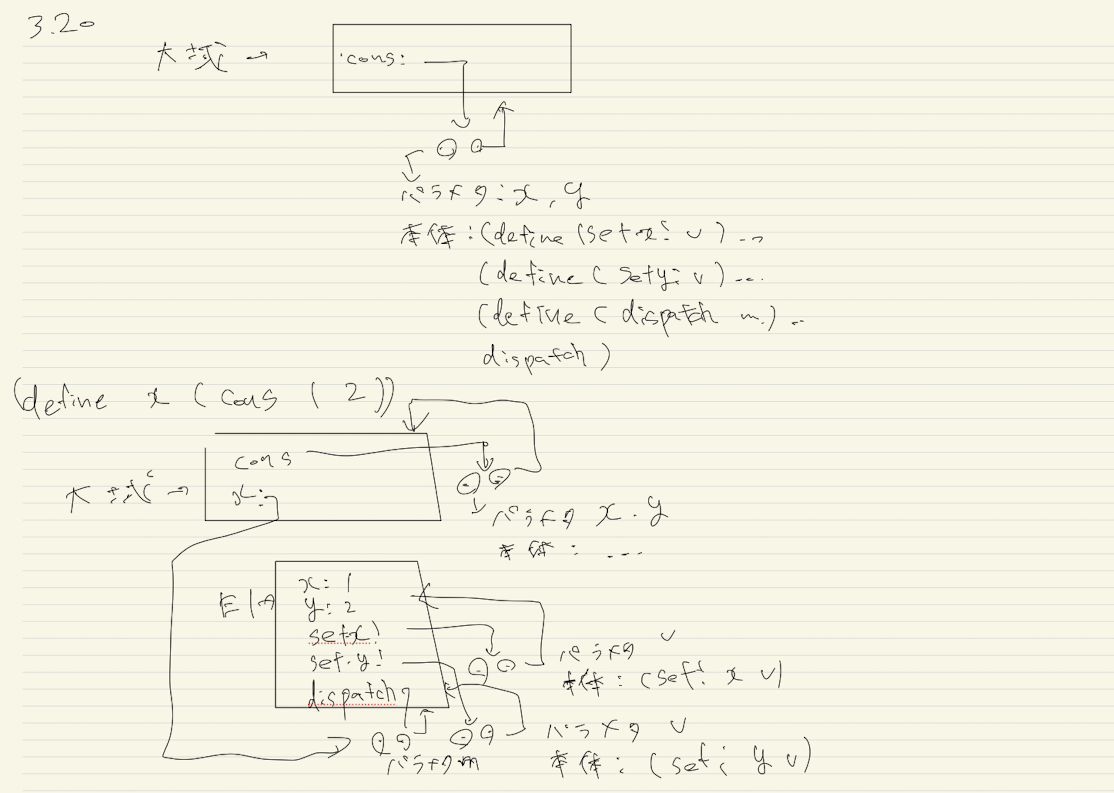 3.20
大域→
cons:
パラメタ:x,y
本体:(define (set-x! v)...
(define (set-y! v)...
(define (dispatch m)...
dispatch)
(define x (cons 1 2))
cons
大域→
x:
パラメタ x.y
本体: ...
x: 1
E1→
y: 2
setx!
set-y!
dispatch
パラメタ v
本体: (set! x v)
パラメタ v
本体: (set! y v)
パラメタ m